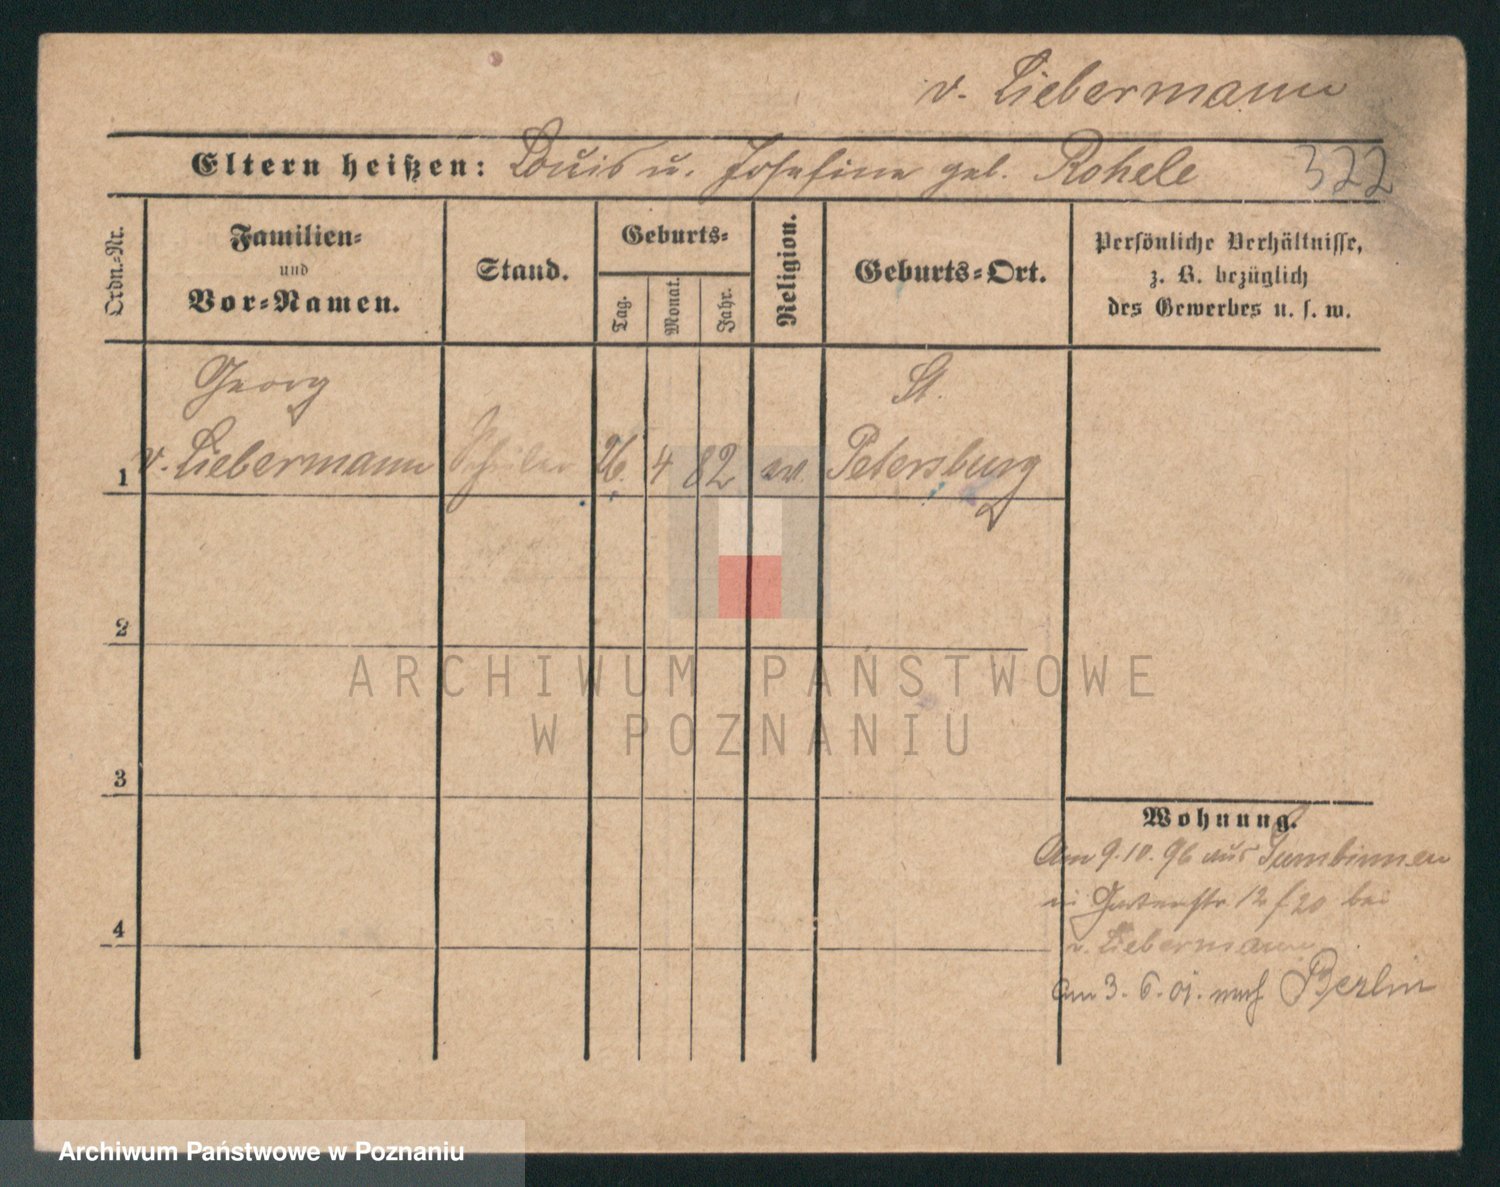 v. Liebermann
Eltern heißen: Louis u. Josefine geb. Rohele
322
Ordn.-Nr.
Familien-
und
Vor-Namen.
Stand.
Geburts-
Tag.
Monat.
Jahr.
Religion.
Geburts-Ort.
Persönliche Verhältnisse,
z. B. bezüglich
des Gewerbes u. s. w.
Georg
St.
1 v. Liebermann Schüler 26. 4 82 ev. Petersburg
2
3
4
Wohnung.
Am 9.10.96 aus Gumbinnen
in 12 bei
v. Liebermann
Am 3.6.01. nach Berlin
ARCHIWUM PAŃSTWOWE
W POZNANIU
Archiwum Państwowe w Poznaniu